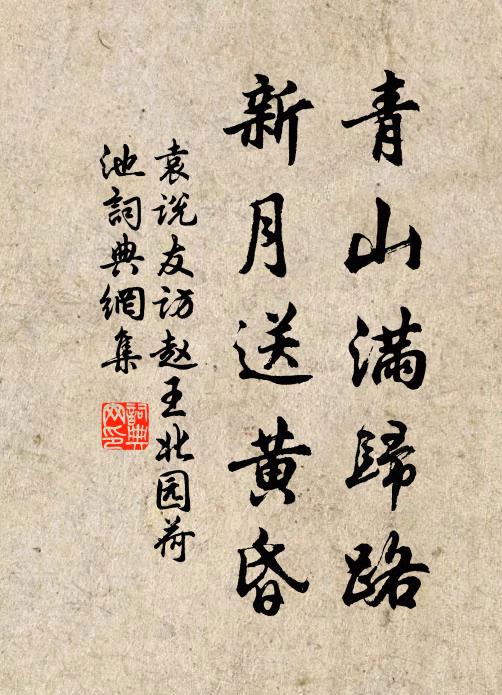 青山滿歸路
新月送黄昏
袁说友访赵王北园荷
池詞典網集
詞典网印